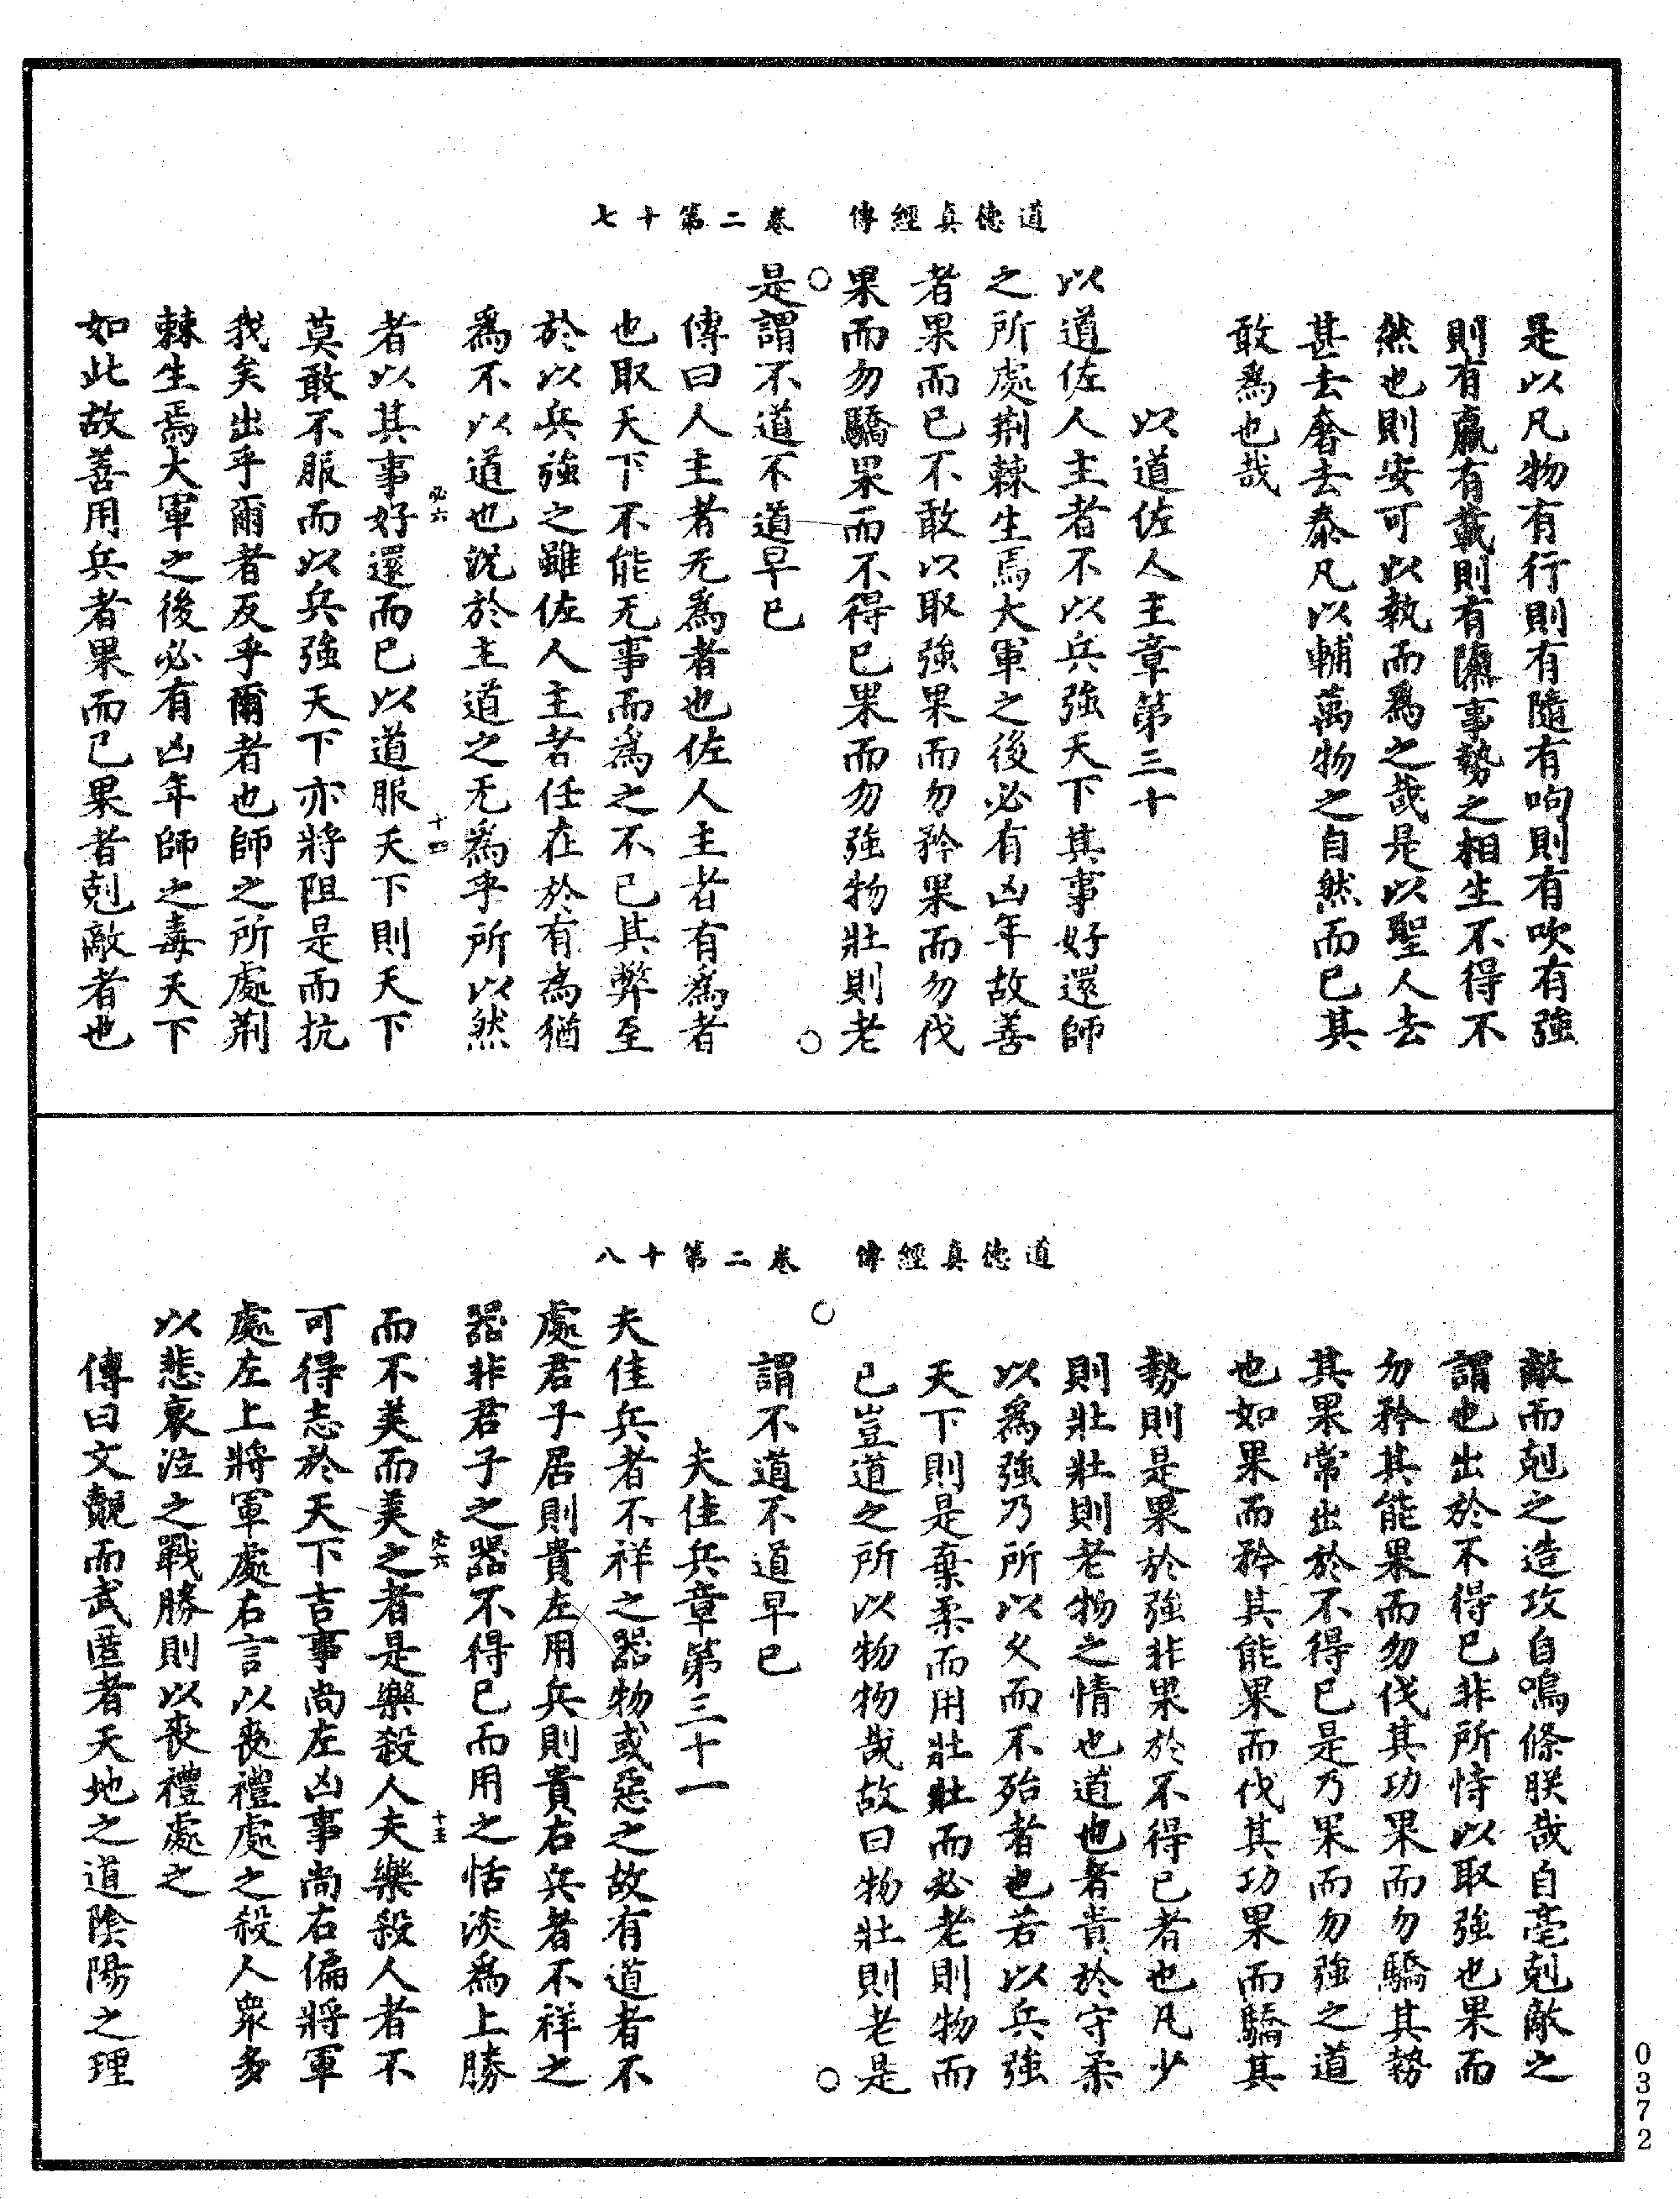 道德真經傳　卷二第十七
是以凡物有行則有隨有呴則有吹有強
則有羸有載則有隳事勢之相生不得不
然也則安可以執而為之哉是以聖人去
甚去奢去泰凡以輔萬物之自然而已其
敢為也哉
以道佐人主章第三十
以道佐人主者不以兵強天下其事好還師
之所處荆棘生焉大軍之後必有凶年故善
者果而已不敢以取強果而勿矜果而勿伐
果而勿驕果而不得已果而勿強物壯則老
是謂不道不道早已
傳曰人主者无為者也佐人主者有為者
也取天下不能无事而為之不已其弊至
於以兵強之雖佐人主者任在於有為猶
為不以道也況於主道之无為乎所以然
必六
十四
者以其事好還而已以道服天下則天下
莫敢不服而以兵強天下亦將阻是而抗
我矣出乎爾者反乎爾者也師之所處荆
棘生焉大軍之後必有凶年師之毒天下
如此故善用兵者果而已果者剋敵者也
道德真經傳　卷二第十八
敵而剋之造攻自鳴條朕哉自亳剋敵之
謂也出於不得已非所恃以取強也果而
勿矜其能果而勿伐其功果而勿驕其勢
其果常出於不得已是乃果而勿強之道
也如果而矜其能果而伐其功果而驕其
勢則是果於強非果於不得已者也凡少
則壯壯則老物之情也道也者貴於守柔
以為強乃所以久而不殆者也若以兵強
天下則是棄柔而用壯壯而必老則物而
已豈道之所以物物哉故曰物壯則老是
謂不道不道早已
夫佳兵章第三十一
夫佳兵者不祥之器物或惡之故有道者不
處君子居則貴左用兵則貴右兵者不祥之
器非君子之器不得已而用之恬淡為上勝
必六
十五
而不美而美之者是樂殺人夫樂殺人者不
可得志於天下吉事尚左凶事尚右偏將軍
處左上將軍處右言以喪禮處之殺人眾多
以悲哀泣之戰勝則以喪禮處之
傳曰文覿而武匿者天地之道陰陽之理
0372